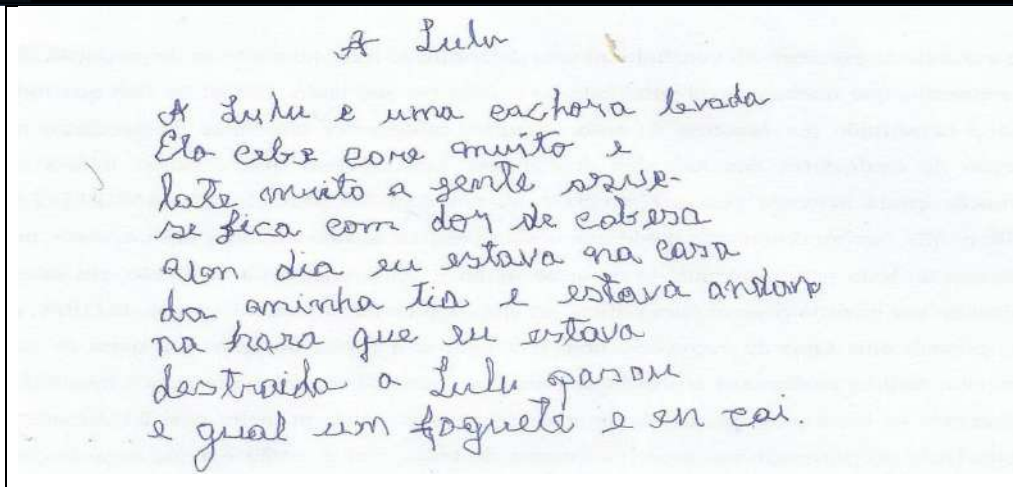 A Lulu
A Lulu e uma cachora levada
Ela core muito e
late muito a gente
se fica com dor de cabesa
um dia eu estava na casa
da minha tia e estava andan
na hora que eu estava
destraida a Lulu pasou
e gual um foguete e eu cai